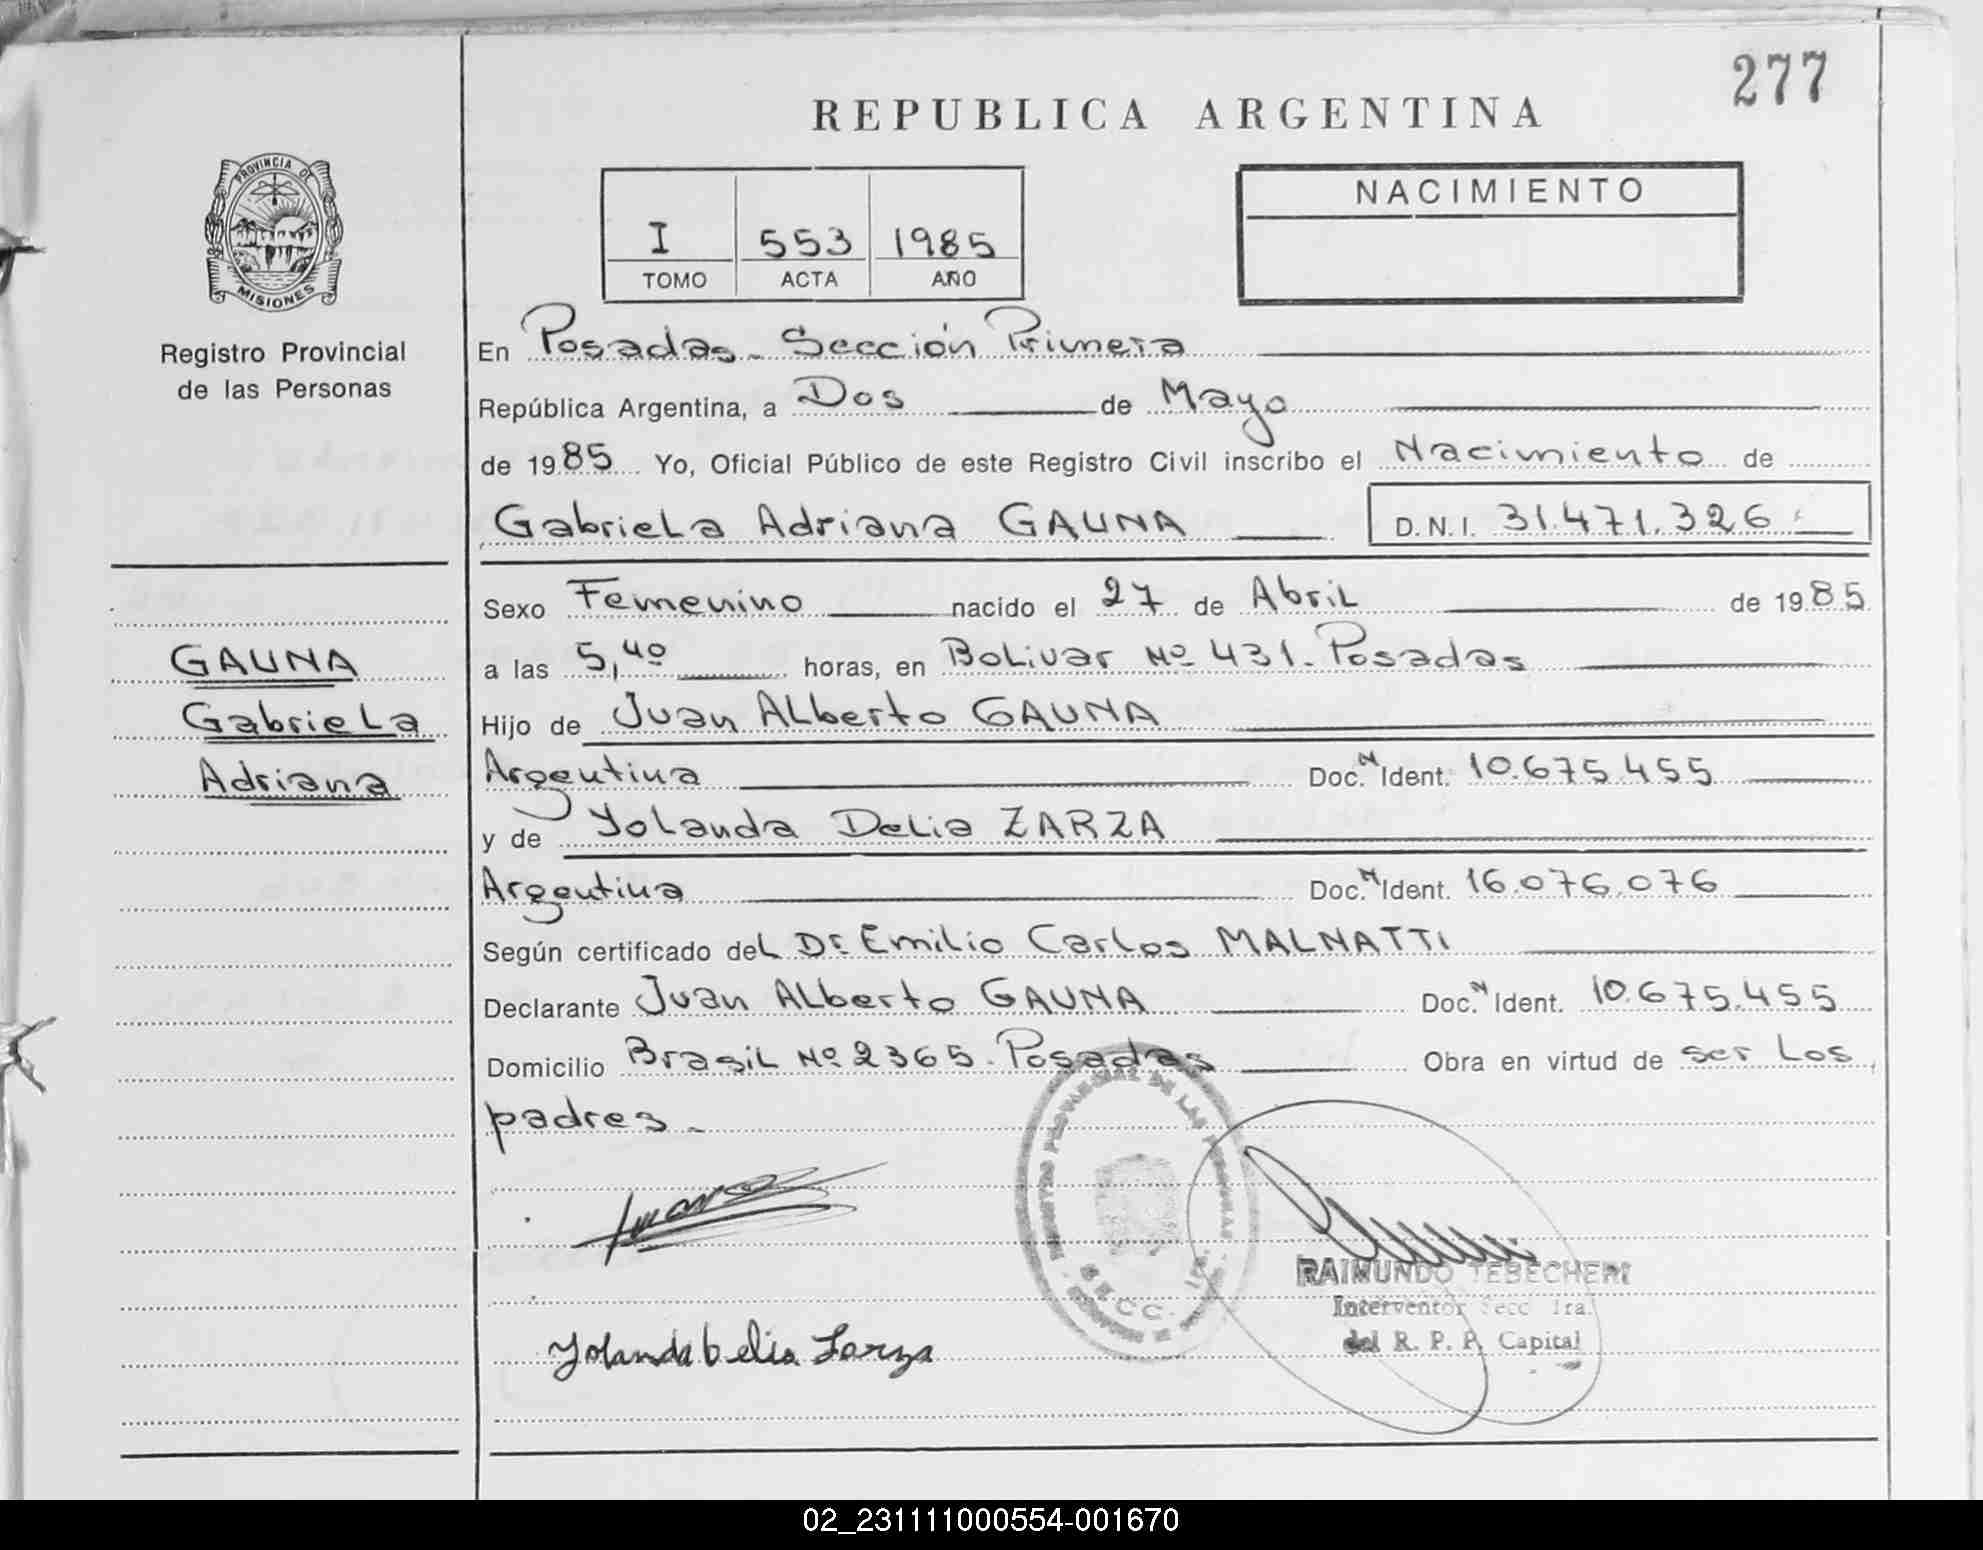 277
REPUBLICA ARGENTINA
PROVINCIA DE
MISIONES
Registro Provincial
de las Personas
I 553 1985
TOMO ACTA AÑO
NACIMIENTO
En Posadas - Sección Primera
República Argentina, a Dos de Mayo
de 1985 Yo, Oficial Público de este Registro Civil inscribo el Nacimiento de
Gabriela Adriana GAUNA D.N.I. 31.471.326
Sexo Femenino nacido el 27 de Abril de 1985
a las 5,40 horas, en Bolivar Nº 431. Posadas
Hijo de Juan Alberto GAUNA
Argentina Doc. N Ident. 10.675.455
y de Yolanda Delia ZARZA
Argentina Doc. N Ident. 16.076.076
Según certificado del Dr Emilio Carlos MALNATTI
Declarante Juan Alberto GAUNA Doc. N Ident. 10.675.455
Domicilio Brasil Nº 2365. Posadas Obra en virtud de ser los
padres.-
GAUNA
Gabriela
Adriana
REGISTRO PROVINCIAL DE LAS PERSONAS
SECC. 1ra.
RAIMUNDO TEBECHERI
Interventor Secc 1ra.
del R. P. P. Capital
Yolanda Delia Zarza
02_231111000554-001670